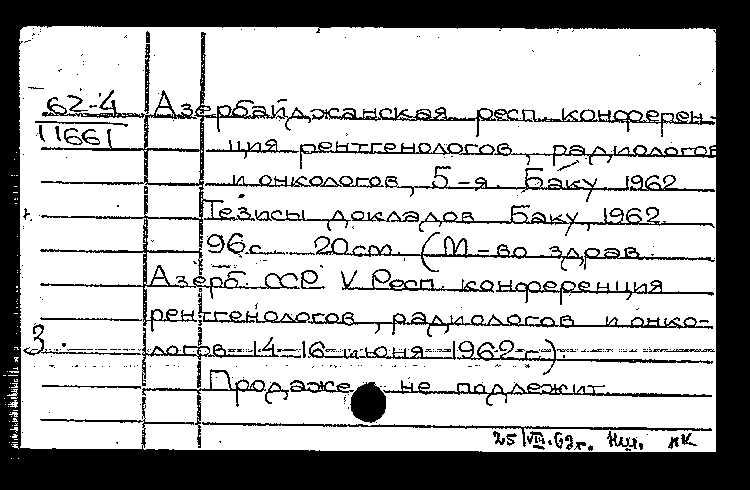 62-4 Азербайджанская респ. конферен-
11661
ция рентгенологов, радиологов
и онкологов, 5-я. Баку. 1962
Тезисы докладов Баку, 1962.
96с. 20см. (М-во здрав.
Азерб. ССР. V Респ. конференция
рентгенологов, радиологов и онко-
3.
логов 14-16 июня 1962 г.).
Продаже не подлежит.
25/VIII.62г.